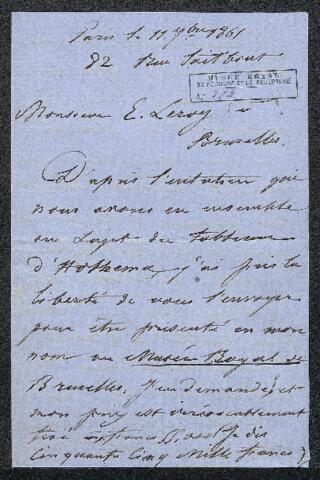 Paris le 11 9bre 1861
82 Rue Taitbout
MUSÉE ROYAL
DE PEINTURE ET DE SCULPTURE
N°
Monsieur E. Leroy à
Bruxelles.
D'après l'entretien que
nous avons eu ensemble
au sujet du Tableau
d'Hobbema, j'ai pris la
liberté de vous l'envoyer
pour être présenté en mon
nom au Musée Royal de
Bruxelles. J'en demande et
mon prix est
fixé francs (je dis
Cinquante Cinq Mille francs)